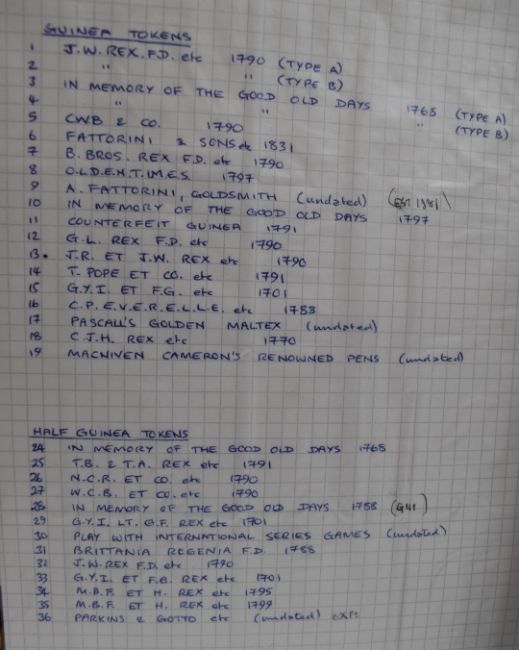 GUINEA TOKENS
1 J.W. REX. F.D. etc 1790 (TYPE A)
2 " " (TYPE B)
3 IN MEMORY OF THE GOOD OLD DAYS 1768 (TYPE A)
4 " " " (TYPE B)
5 CWB & CO. 1790
6 FATTORINI & SONS etc 1831
7 B. BROS. REX F.D. etc 1790
8 O.L.D.E.N.T.I.M.E.S. 1797
9 A. FATTORINI, GOLDSMITH (undated) (EST 1831)
10 IN MEMORY OF THE GOOD OLD DAYS 1797
11 COUNTERFEIT GUINEA 1791
12 G.L. REX F.D. etc 1790
13. J.R. ET J.W. REX etc 1790
14 T. POPE ET CO. etc 1791
15 G.Y.I. ET F.G. etc 1701
16 C.P.E.V.E.R.E.L.L.E. etc 1788
17 PASCALL'S GOLDEN MALTEX (undated)
18 C.J.H. REX etc 1770
19 MACNIVEN CAMERON'S RENOWNED PENS (undated)
HALF GUINEA TOKENS
24 IN MEMORY OF THE GOOD OLD DAYS 1768
25 T.B. & T.A. REX etc 1791
26 N.C.R. ET CO. etc 1790
27 W.C.B. ET CO. etc 1790
28 IN MEMORY OF THE GOOD OLD DAYS 1788
29 G.Y.I. LT. G.F. REX etc 1701
30 PLAY WITH INTERNATIONAL SERIES GAMES (undated)
31 BRITTANIA REGENIA F.D. 1788
32 J.W. REX F.D. etc 1790
33 G.Y.I. ET F.G. REX etc 1701
34 M.B.F. ET H. REX etc 1795
35 M.B.F. ET H. REX etc 1799
36 PARKINS & GOTTO etc (undated)